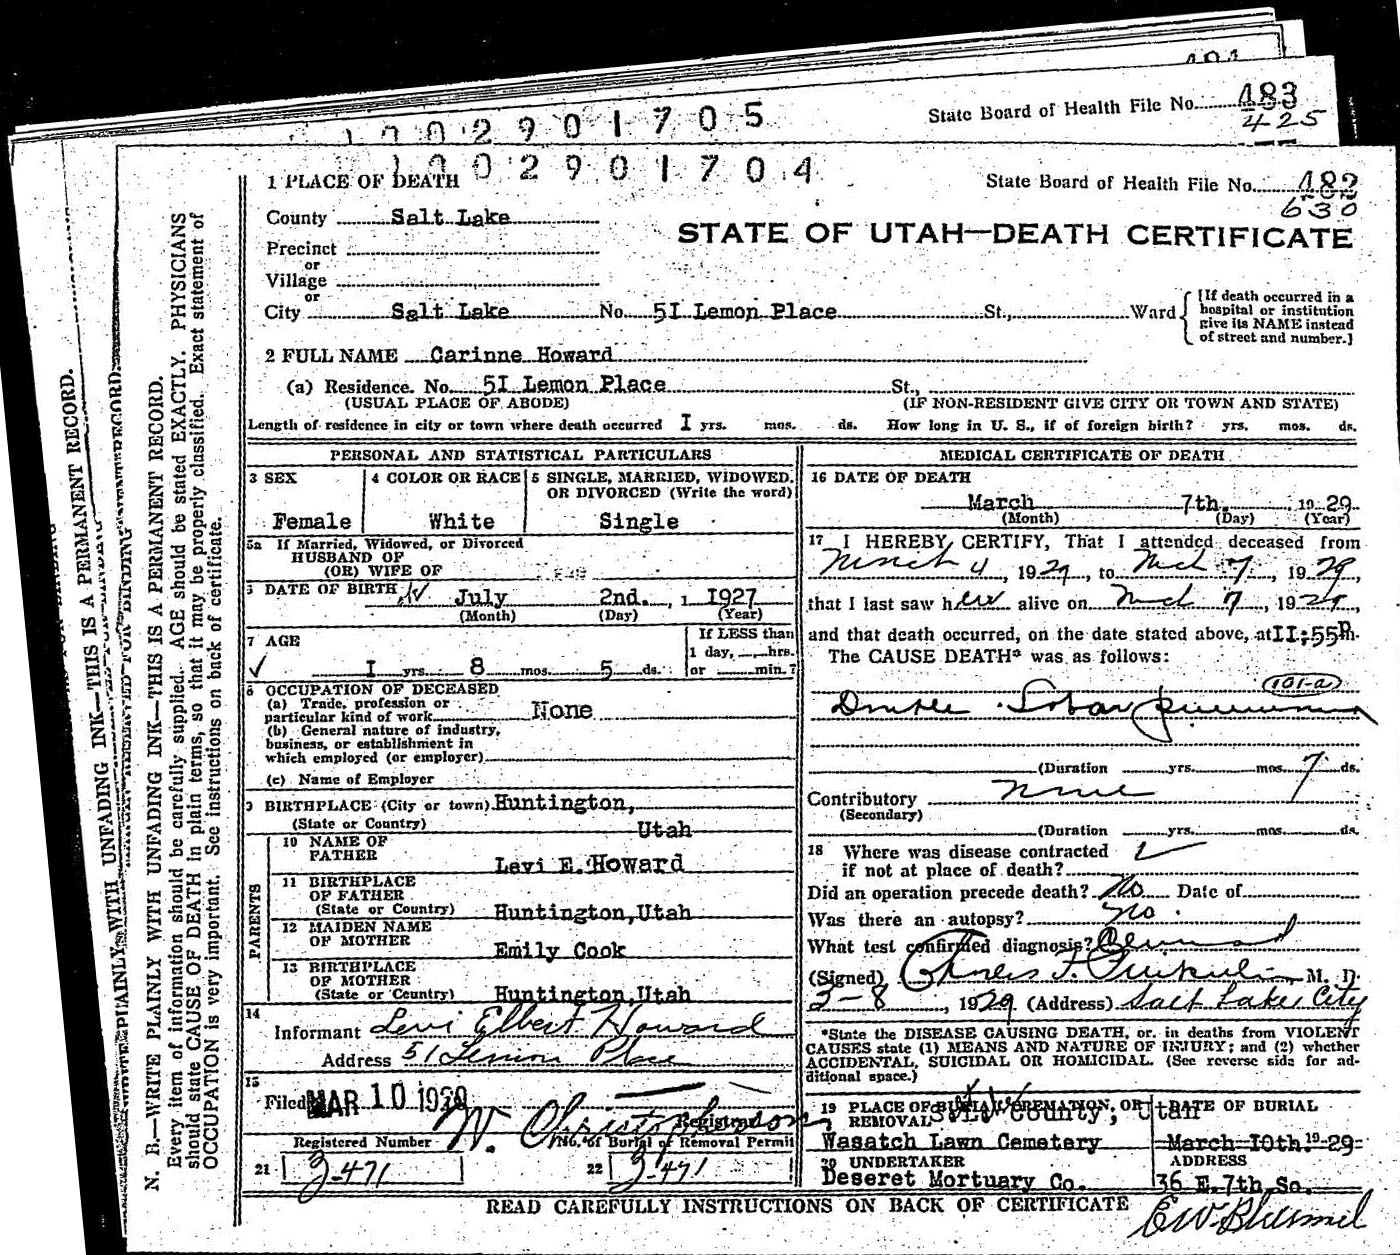 481
State Board of Health File No. 483
425
1002901705
1002901704
State Board of Health File No. 482
630
1 PLACE OF DEATH
County Salt Lake
STATE OF UTAH—DEATH CERTIFICATE
Precinct
or
Village
or
City Salt Lake No. 5I Lemon Place St., Ward
[If death occurred in a
hospital or institution
give its NAME instead
of street and number.]
2 FULL NAME Carinne Howard
(a) Residence. No. 5I Lemon Place St.,
(USUAL PLACE OF ABODE) (IF NON-RESIDENT GIVE CITY OR TOWN AND STATE)
Length of residence in city or town where death occurred I yrs. mos. ds. How long in U. S., if of foreign birth? yrs. mos. ds.
PERSONAL AND STATISTICAL PARTICULARS
3 SEX
Female
4 COLOR OR RACE
White
5 SINGLE, MARRIED, WIDOWED,
OR DIVORCED (Write the word)
Single
5a If Married, Widowed, or Divorced
HUSBAND OF
(OR) WIFE OF
6 DATE OF BIRTH July 2nd. , 1 1927
(Month) (Day) (Year)
7 AGE
I yrs. 8 mos. 5 ds.
If LESS than
1 day, hrs.
or min.?
8 OCCUPATION OF DECEASED
(a) Trade, profession or
particular kind of work None
(b) General nature of industry,
business, or establishment in
which employed (or employer)
(c) Name of Employer
9 BIRTHPLACE (City or town) Huntington,
(State or Country) Utah
PARENTS
10 NAME OF
FATHER Levi E. Howard
11 BIRTHPLACE
OF FATHER
(State or Country) Huntington,Utah
12 MAIDEN NAME
OF MOTHER Emily Cook
13 BIRTHPLACE
OF MOTHER
(State or Country) Huntington,Utah
14
Informant Levi Elbert Howard
Address 51 Lemon Place
15
Filed MAR 10 1929
W. Christopherson
Registrar
Registered Number
21 3-471
No. of Burial or Removal Permit
22 3-471
MEDICAL CERTIFICATE OF DEATH
16 DATE OF DEATH
March 7th. 1929
(Month) (Day) (Year)
17 I HEREBY CERTIFY, That I attended deceased from
March 4, 1929, to Mch 7, 1929,
that I last saw her alive on Mch 7, 1929,
and that death occurred, on the date stated above, at II:55P m.
The CAUSE DEATH* was as follows:
101-a
Double Lobar pneumonia
(Duration yrs. mos. 7 ds.
Contributory none
(Secondary)
(Duration yrs. mos. ds.
18 Where was disease contracted
if not at place of death?
Did an operation precede death? No Date of
Was there an autopsy? no.
What test confirmed diagnosis? Clinical
(Signed) Charles F. M. D.
3-8, 1929 (Address) Salt Lake City
*State the DISEASE CAUSING DEATH, or, in deaths from VIOLENT
CAUSES state (1) MEANS AND NATURE OF INJURY; and (2) whether
ACCIDENTAL, SUICIDAL OR HOMICIDAL. (See reverse side for ad-
ditional space.)
19 PLACE OF BURIAL, CREMATION, OR
REMOVAL S.L. County, Utah
Wasatch Lawn Cemetery
DATE OF BURIAL
March 10th. 19 29
20 UNDERTAKER
Deseret Mortuary Co.
ADDRESS
36 E. 7th So.
READ CAREFULLY INSTRUCTIONS ON BACK OF CERTIFICATE
N. B.—WRITE PLAINLY WITH UNFADING INK—THIS IS A PERMANENT RECORD.
Every item of information should be carefully supplied. AGE should be stated EXACTLY. PHYSICIANS
should state CAUSE OF DEATH in plain terms, so that it may be properly classified. Exact statement of
OCCUPATION is very important. See instructions on back of certificate.
PLAINLY WITH UNFADING INK—THIS IS A PERMANENT RECORD.